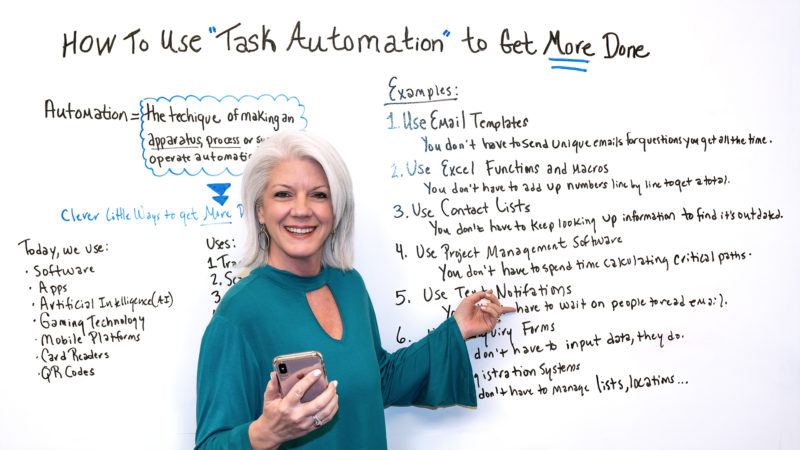 How To Use "Task Automation" to Get More Done
Automation = the techique of making an
apparatus, process or
operate
Clever Little Ways to get More
Today, we use:
• Software
• Apps
• Artificial Inklligence (AI)
• Gaming Technology
• Mobile Platforms
• Card Readers
• QR Codes
Uses:
1.
2.
3.
Examples:
1. Use Email Templates
You don't have to send unique emails for questions you get all the time.
2. Use Excel Functims and Macros
You don't have to add up numbers line by line to get a total.
3. Use Contact Lists
You don't have to keep looking up information to find it's outdated.
4. Use Project Management Software
You don't have to spend time calculating critical paths.
5. Use Notifations
have to wait on people to read email.
6. Forms
don't have to input data, they do.
Systems
don't have to manage lists, locatims...